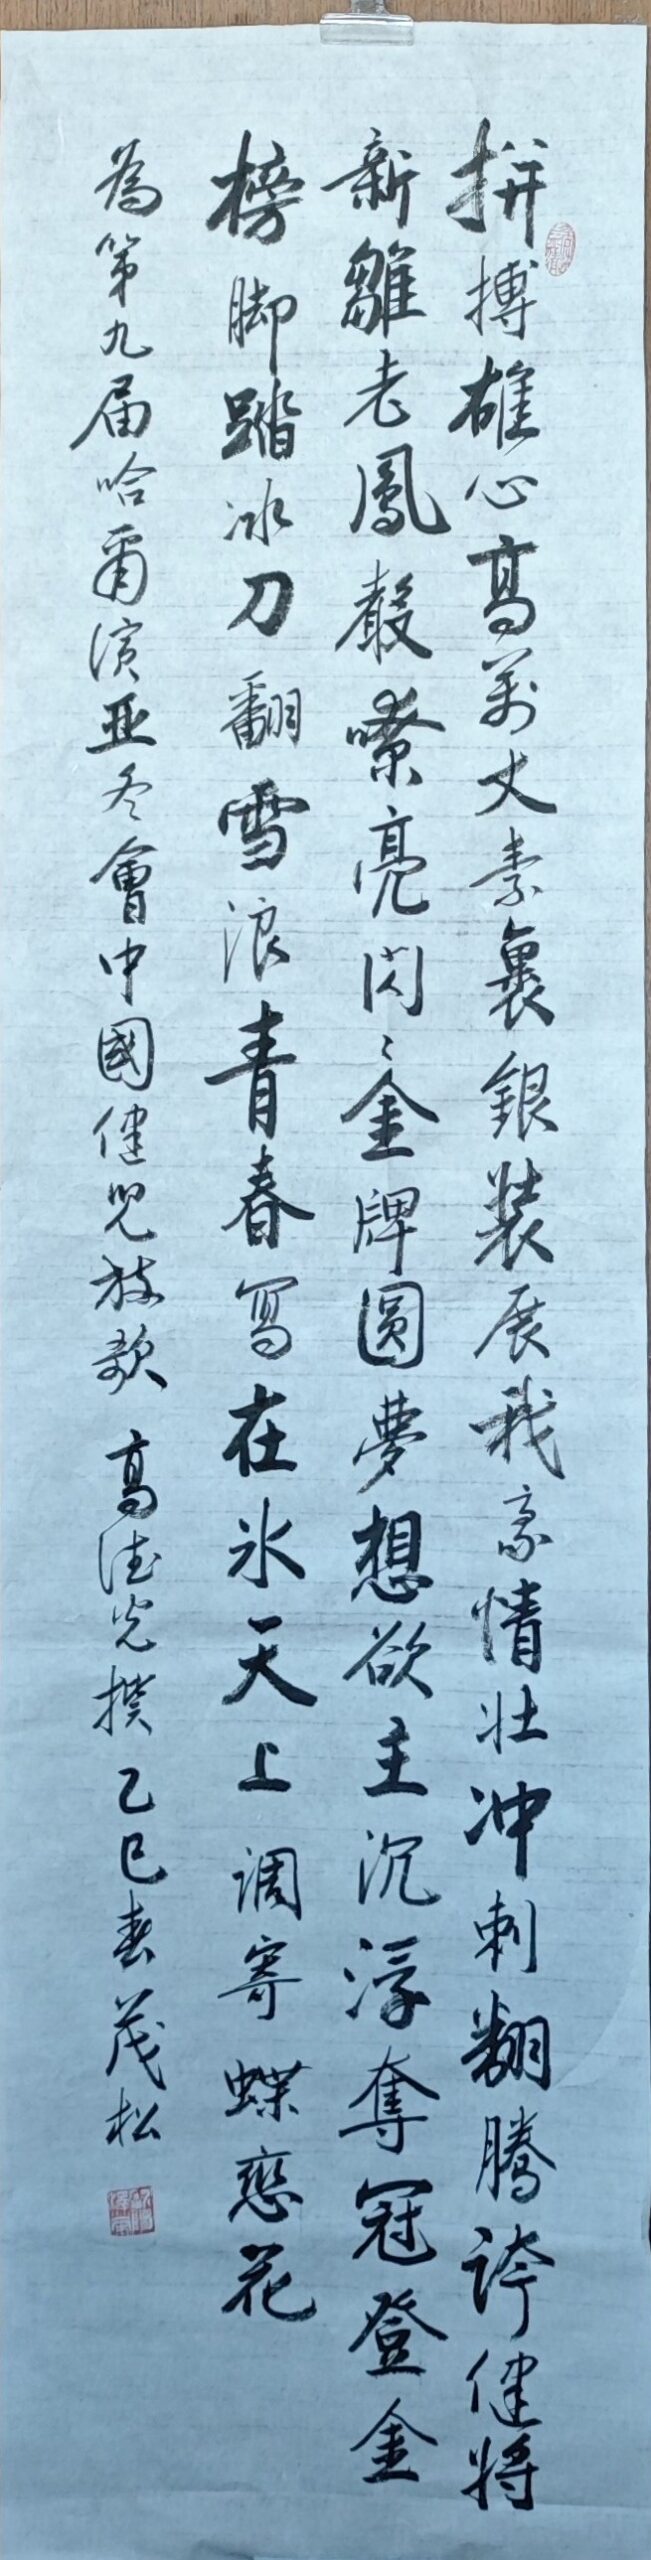 拼搏雄心高萬丈素裹銀裝展我豪情壯冲刺翻騰誇健將
新雛老鳳聲嘹亮閃〻金牌圓夢想欲主沉浮奪冠登金
榜脚踏冰刀翻雪浪青春寫在冰天上调寄蝶戀花
為第九届哈爾濱亚冬會中國健兒放歌 高德光撰乙巳春茂松